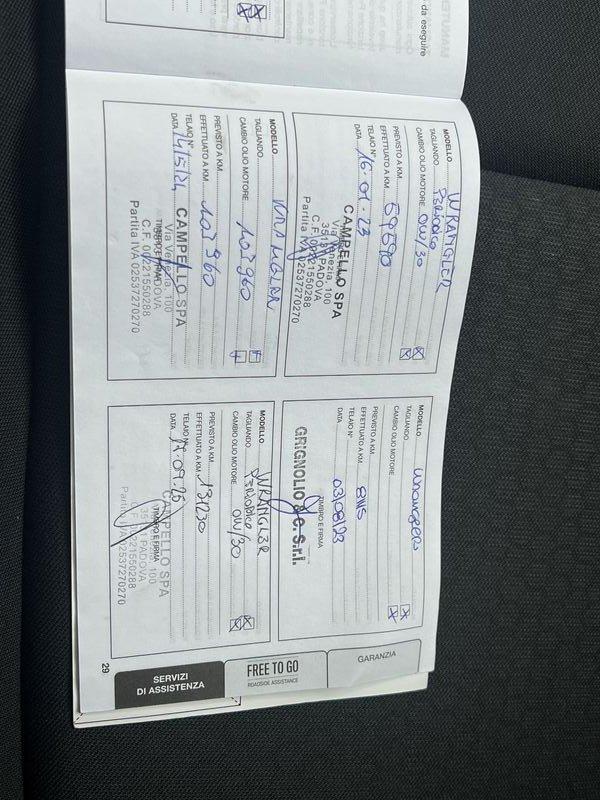 da eseguire
MODELLO WRANGLER
TAGLIANDO PERIODICO
CAMBIO OLIO MOTORE 0W/30
PREVISTO A KM
EFFETTUATO A KM 59590
TELAIO N°
DATA 16.01.23
CAMPELLO SPA
Via Venezia, 100
PADOVA
C.F. 00221550288
Partita IVA 02537270270
MODELLO
TAGLIANDO
CAMBIO OLIO MOTORE
PREVISTO A KM
EFFETTUATO A KM
TELAIO N°
DATA 03/08/23
TIMBRO E FIRMA
GRIGNOLIO & C. S.r.l.
MODELLO WRANGLER
TAGLIANDO
CAMBIO OLIO MOTORE 103960
PREVISTO A KM
EFFETTUATO A KM 103960
TELAIO N°
DATA 14/5/24
CAMPELLO SPA
Via Venezia, 100
TIMBRO E FIRMA
PADOVA
C.F. 00221550288
Partita IVA 02537270270
MODELLO WRANGLER
TAGLIANDO PERIODICO
CAMBIO OLIO MOTORE 0W/30
PREVISTO A KM
EFFETTUATO A KM 131230
TELAIO N°
DATA
CAMPELLO SPA
Venezia, 100
TIMBRO E FIRMA
PADOVA
00221550288
Partita IVA 02537270270
GARANZIA
FREE TO GO
ROADSIDE ASSISTANCE
SERVIZI
DI ASSISTENZA
29